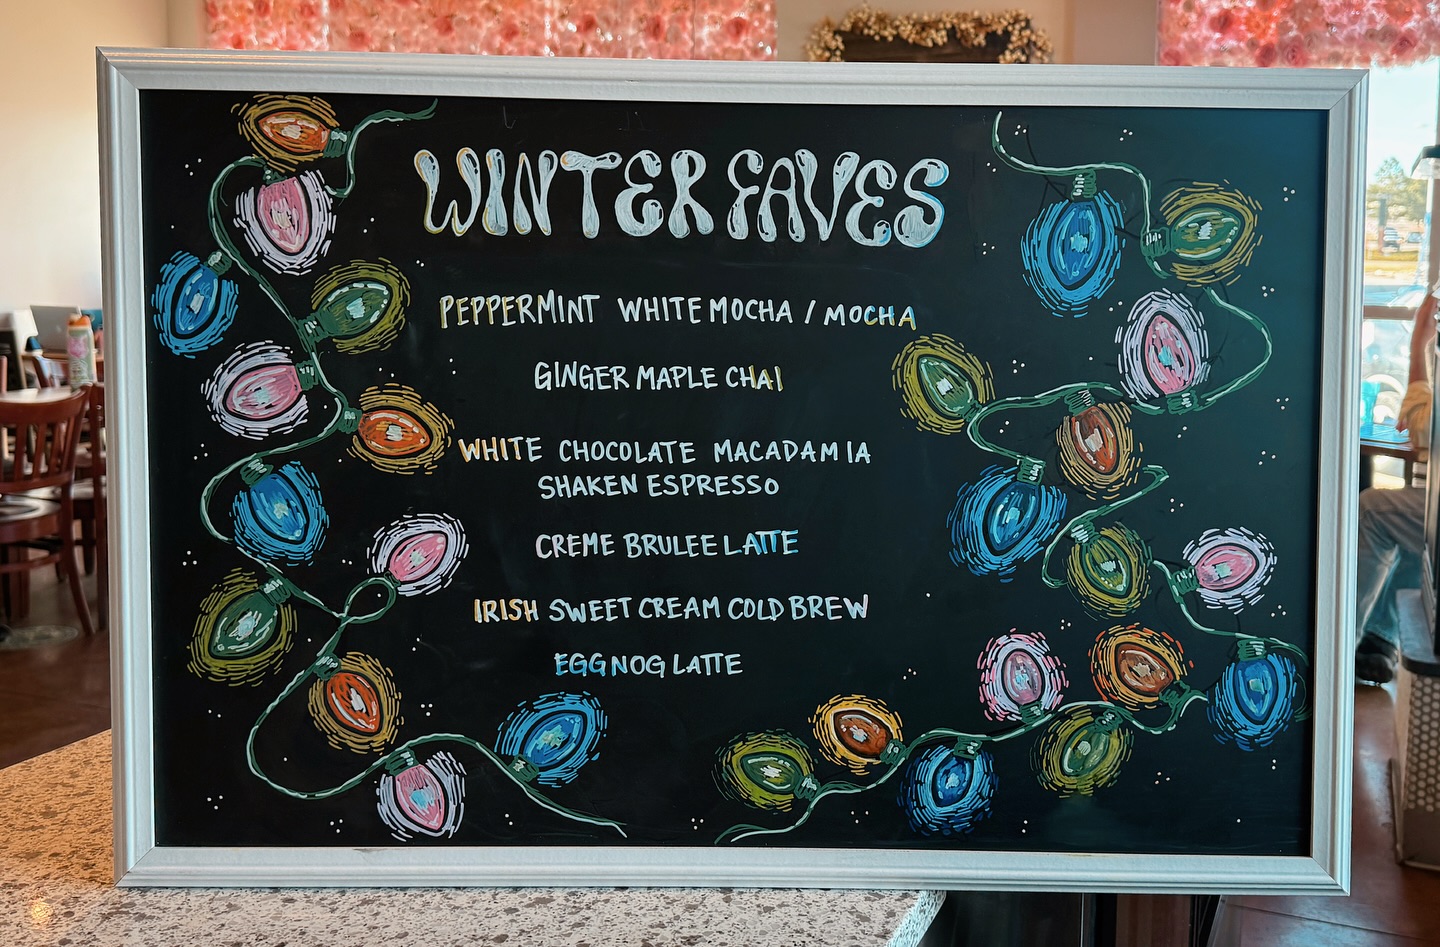 WINTER FAVES
PEPPERMINT WHITE MOCHA / MOCHA
GINGER MAPLE CHAI
WHITE CHOCOLATE MACADAMIA
SHAKEN ESPRESSO
CREME BRULEE LATTE
IRISH SWEET CREAM COLD BREW
EGGNOG LATTE